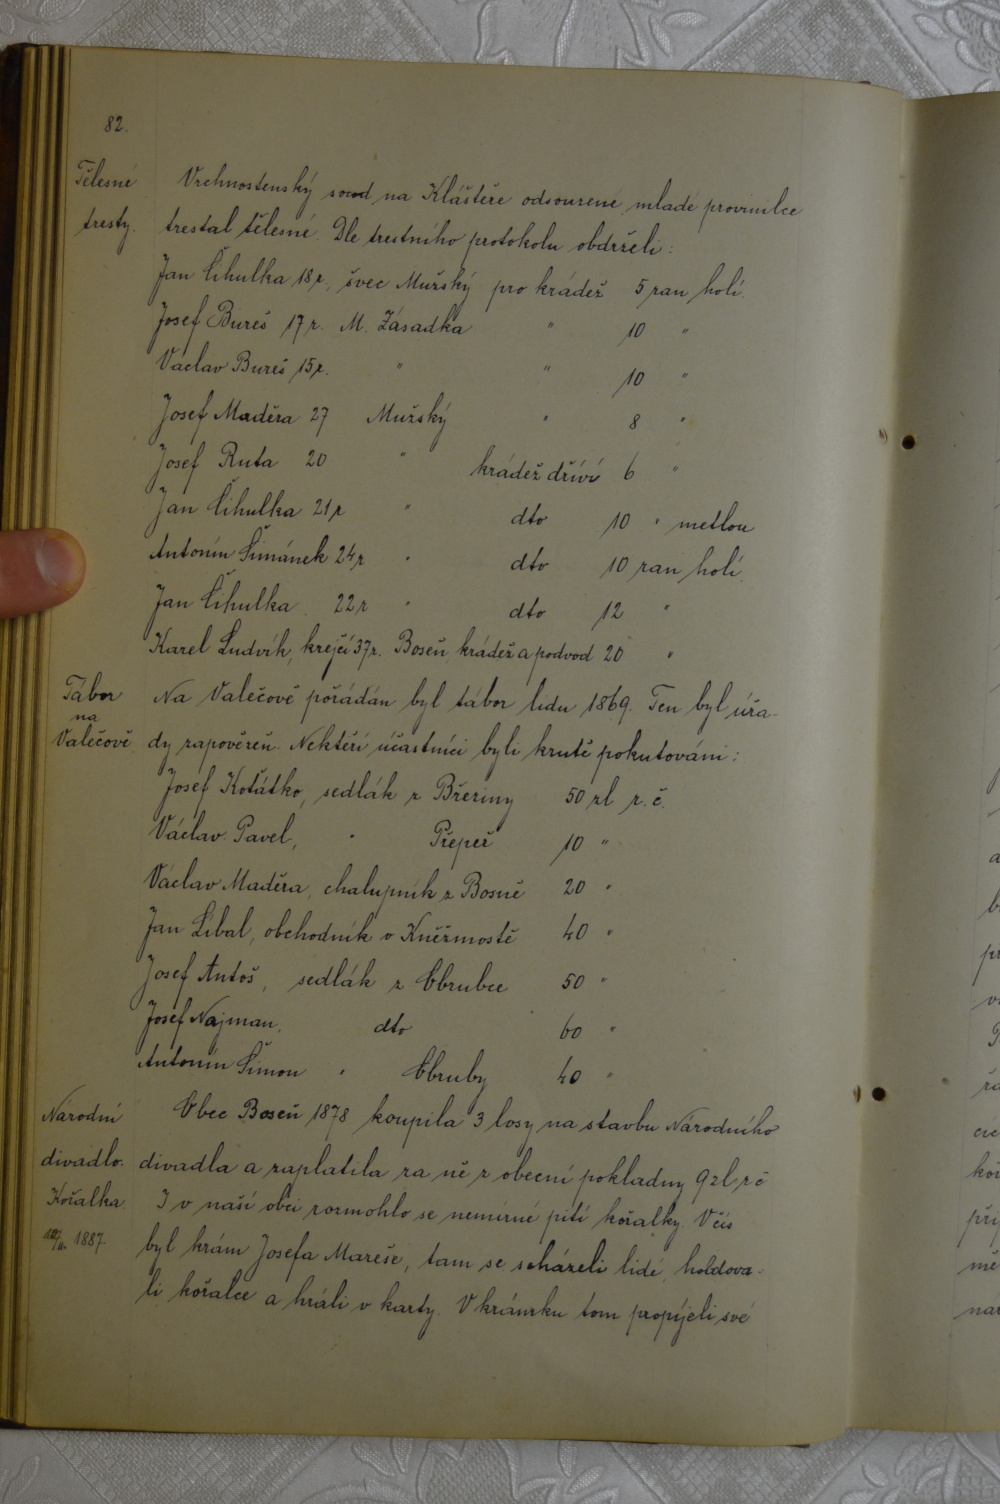 82.
Tělesné Vrchnostenský soud na Klášteře odsouzené mladé provinilce
tresty. trestal tělesně. Dle trestního protokolu obdrželi:
Jan Čihulka 18 r., švec Mužský pro krádež 5 ran holí.
Josef Bureš 17 r. M. Zásadka " 10 "
Václav Bureš 15 r. " " 10 "
Josef Maděra 27 Mužský " 8 "
Josef Ruta 20 " krádež dříví 6 "
Jan Čihulka 21 r " dto 10 " metlou
Antonín Šimánek 24 r " dto 10 ran holí.
Jan Čihulka 22 r " dto 12 "
Karel Ludvík, krejčí 37 r. Boseň krádež a podvod 20 "
Tábor Na Valečově pořádán byl tábor lidu 1869. Ten byl úřa-
na
Valečově dy zapovězen. Někteří účastníci byli krutě pokutováni:
Josef Koťátko, sedlák z Březiny 50 zl r. č.
Václav Pavel, " Přepeř 10 "
Václav Maděra, chalupník z Bosně 20 "
Jan Líbal, obchodník v Kněžmostě 40 "
Josef Antoš, sedlák z Obrubce 50 "
Josef Najman, dto 60 "
Antonín Šimon " Obruby 40 "
Národní Obec Boseň 1878 koupila 3 losy na stavbu Národního
divadlo. divadla a zaplatila za ně z obecní pokladny 9 zl r č
Kořalka. I v naší obci rozmohlo se nemírné pití kořalky. V čís
1887. byl krám Josefa Mareše, tam se scházeli lidé, holdova-
li kořalce a hráli v karty. V krámku tom propíjeli své